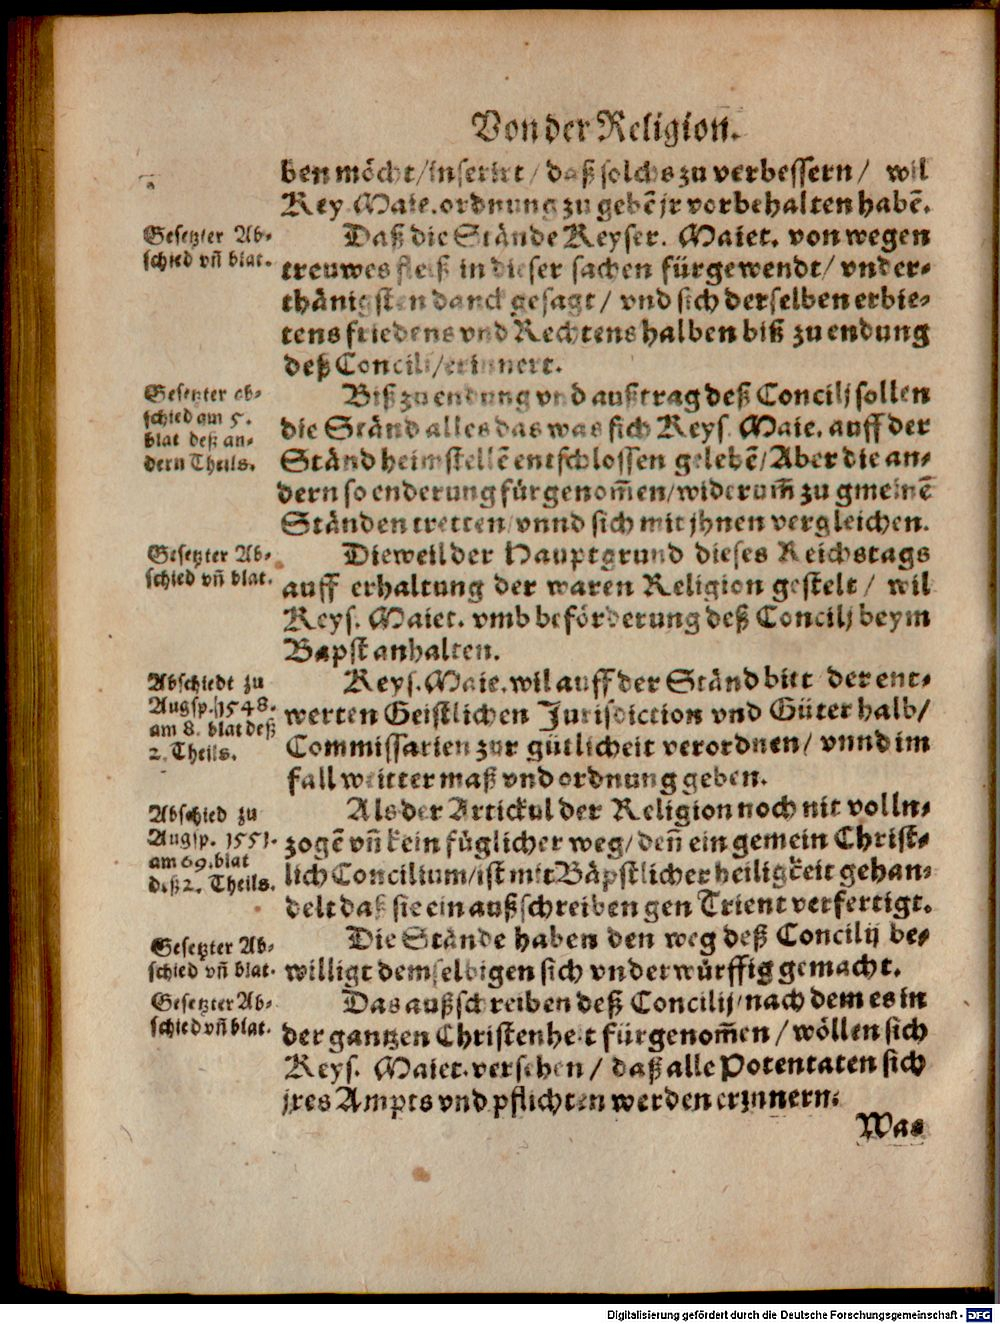 Von der Religion.
ben möcht / inserirt / daß solchs zu verbessern / wil
Key. Maie. ordnung zu gebẽ jr vorbehalten habẽ.
Gesetzter Ab-
schied vñ blat.
Daß die Stände Keyser. Maiet. von wegen
treuwes fleiß in dieser sachen fürgewendt / vnder-
thänigsten danck gesagt / vnd sich derselben erbie-
tens friedens vnd Rechtens halben biß zu endung
deß Concilij / erinnert.
Gesetzter ob-
schied am 5.
blat deß an-
dern Theils.
Biß zu endung vnd außtrag deß Concilij sollen
die Ständ alles das was sich Keys. Maie. auff der
Ständ heimstellẽ entschlossen gelebẽ / Aber die an-
dern so enderung fürgenom̃en / widerum̃ zu gmeinẽ
Ständen tretten / vnnd sich mit jhnen vergleichen.
Gesetzter Ab-
schied vñ blat.
Dieweil der Hauptgrund dieses Reichstags
auff erhaltung der waren Religion gestelt / wil
Keys. Maiet. vmb beförderung deß Concilij beym
Bapst anhalten.
Abschiedt zu
Augsp. 1548.
am 8. blat deß
2. Theils.
Keys. Maie. wil auff der Ständ bitt der ent-
werten Geistlichen Jurisdiction vnd Güter halb /
Commissarien zur gütlicheit verordnen / vnnd im
fall weitter maß vnd ordnung geben.
Abschied zu
Augsp. 1551.
am 69. blat
deß 2. Theils.
Als der Artickul der Religion noch nit volln-
zogẽ vñ kein füglicher weg / deñ ein gemein Christ-
lich Concilium / ist mit Bäpstlicher heiligkeit gehan-
delt daß sie ein außschreiben gen Trient verfertigt.
Gesetzter Ab-
schied vñ blat.
Die Stände haben den weg deß Concilij be-
willigt demselbigen sich vnderwürffig gemacht.
Gesetzter Ab-
schied vñ blat.
Das außschreiben deß Concilij / nach dem es in
der gantzen Christenheit fürgenom̃en / wöllen sich
Keys. Maiet. versehen / daß alle Potentaten sich
jres Ampts vnd pflichten werden erinnern.
Was
Digitalisierung gefördert durch die Deutsche Forschungsgemeinschaft - DFG